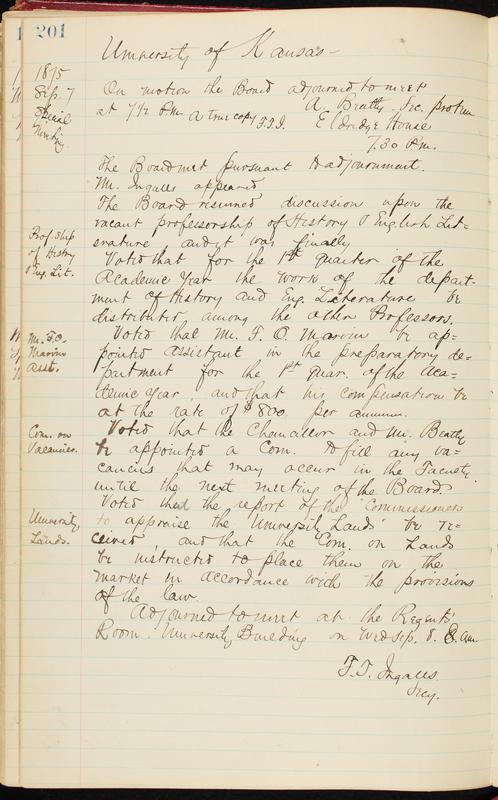 201
University of Kansas-
1875
Sep. 7
Special
Meeting.
On motion the Board adjourned to meet
at 7½ P.M. A true copy F.T.I.
A. Beatty, Sec. pro tem
Eldridge House
7.30 P.M.
The Board met pursuant to adjournment.
Mr. Ingalls appeared
The Board resumed discussion upon the
vacant professorship of History & English Lit=
erature and it was finally
Prof.ship
of History
& Eng. Lit.
Voted that for the 1st quarter of the
Academic Year the work of the depart-
ment of History and Eng. Literature be
distributed among the other Professors.
Mr. F.O.
Marvin
Asst.
Voted that Mr. F. O. Marvin be ap=
pointed assistant in the preparatory de=
partment for the 1st quar. of the Aca=
demic year, and that his compensation be
at the rate of $800. per annum.
Com. on
Vacancies.
Voted that the Chancellor and Mr. Beatty
be appointed a Com. to fill any va=
cancies that may occur in the Faculty
until the next meeting of the Board.
University
Lands.
Voted that the report of the "Commissioners
to appraise the University Lands" be re=
ceived, and that the Com. on Lands
be instructed to place them on the
market in accordance with the provisions
of the law.
Adjourned to meet at the Regents'
Room, University Building on Wed Sep. 8. 8 a.m.
F.T. Ingalls
Secy.